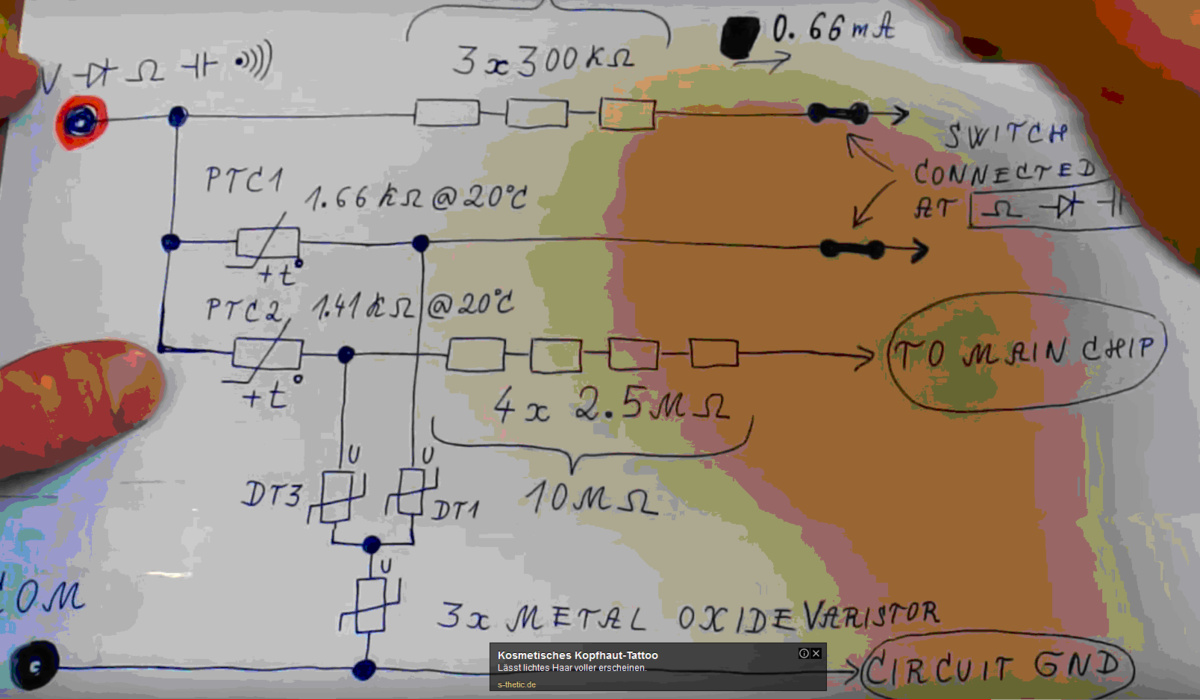 3 x 300 kΩ
0.66 mA
V Ω
SWITCH
CONNECTED
AT Ω
PTC1
1.66 kΩ @ 20°C
+t°
PTC2
1.41 kΩ @ 20°C
+t°
TO MAIN CHIP
4 x 2.5 MΩ
10 MΩ
U
U
DT3
DT1
U
COM
3x METAL OXIDE VARISTOR
CIRCUIT GND
Kosmetisches Kopfhaut-Tattoo
Lässt lichtes Haar voller erscheinen.
s-thetic.de